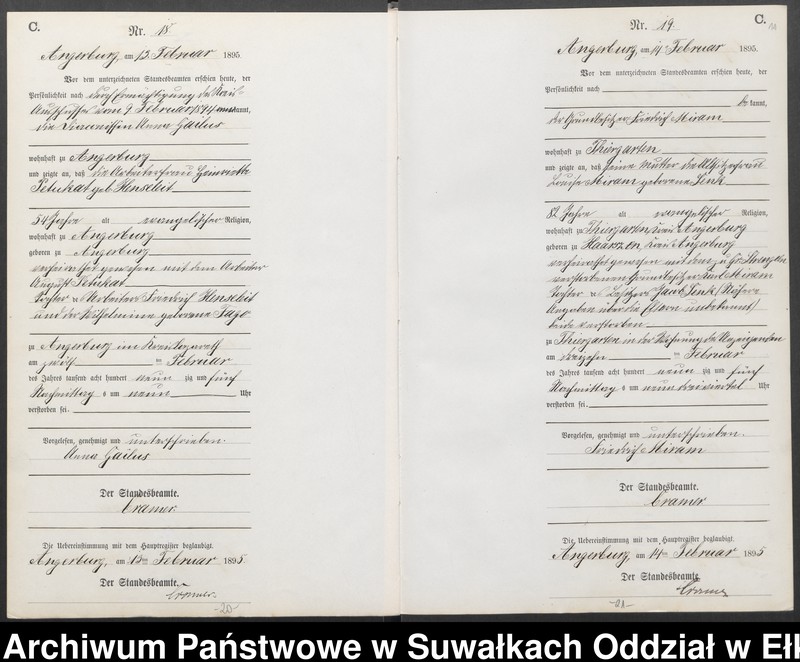 C.
Nr. 18
Angerburg, am 13. Februar 1895.
Vor dem unterzeichneten Standesbeamten erschien heute, der
Persönlichkeit nach durch Ermächtigung des Kreis-
Ausschusses vom 9. Februar 1894 kannt,
die Diaconissin Anna Gailus
wohnhaft zu Angerburg
und zeigte an, daß die Arbeiterfrau Heinriette
Petukat geb. Henseleit
54 Jahre alt evangelischer Religion,
wohnhaft zu Angerburg
geboren zu Angerburg
verheirathet gewesen mit dem Arbeiter
August Petukat
Tochter des Arbeiters Friedrich Henseleit
und der Wilhelmine geborene
zu Angerburg im Kreislazareth
am zwölften Februar
des Jahres tausend acht hundert neun zig und fünf
Nachmittags um neun Uhr
verstorben sei.
Vorgelesen, genehmigt und unterschrieben.
Anna Gailus
Der Standesbeamte.
Cramer
Die Uebereinstimmung mit dem Hauptregister beglaubigt.
Angerburg, am 13ten Februar 1895
Der Standesbeamte.
Cramer.
-20-
Nr. 19.
C.
Angerburg, am 14. Februar 1895.
Vor dem unterzeichneten Standesbeamten erschien heute, der
Persönlichkeit nach
be kannt,
der Grundbesitzer Friedrich Miram
wohnhaft zu Thiergarten
und zeigte an, daß seine Mutter die Altsitzerfrau
Louise Miram geborene Senk
82 Jahre alt evangelischer Religion,
wohnhaft zu Thiergarten Kreis Angerburg
geboren zu Haarszen Kreis Angerburg
verheirathet gewesen mit dem zu
verstorbenen Grundbesitzer Miram
Tochter des Besitzers Senk (Nähere
Angaben über die Eltern unbekannt)
beide verstorben
zu Thiergarten in der Wohnung des Anzeigenden
am dreizehn ten Februar
des Jahres tausend acht hundert neun zig und fünf
Nachmittags um neun dreiviertel Uhr
verstorben sei.
Vorgelesen, genehmigt und unterschrieben.
Friedrich Miram
Der Standesbeamte.
Cramer
Die Uebereinstimmung mit dem Hauptregister beglaubigt.
Angerburg, am 14ten Februar 1895
Der Standesbeamte.
Cramer
-21-
Archiwum Państwowe w Suwałkach Oddział w Ełk